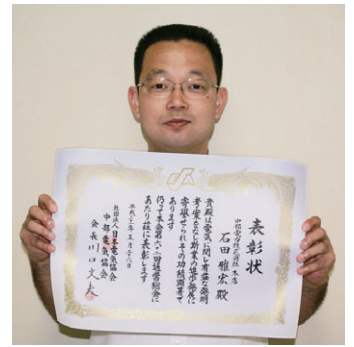 表彰状
中部電力株式会社 本店
石田 雅宏 殿
貴殿は電気に関し有益な発明
考案をなし斯業の進歩発展に
寄与せられその功績顕著で
あります
仍って本会第六十一回通常総会に
あたり茲に表彰します
平成二十一年五月二十八日
社団法人日本電気協会
中部電気協会
会長 川口文夫